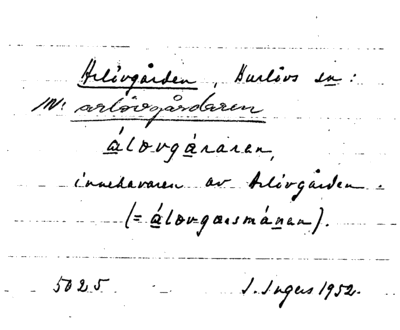 Arlövgården, Burlövs sn:
IN: arlövgårdaren
álovgáraren,
innehavaren av Arlövgården.
(= álovgarsmánen).
5025 I. Ingers 1952.